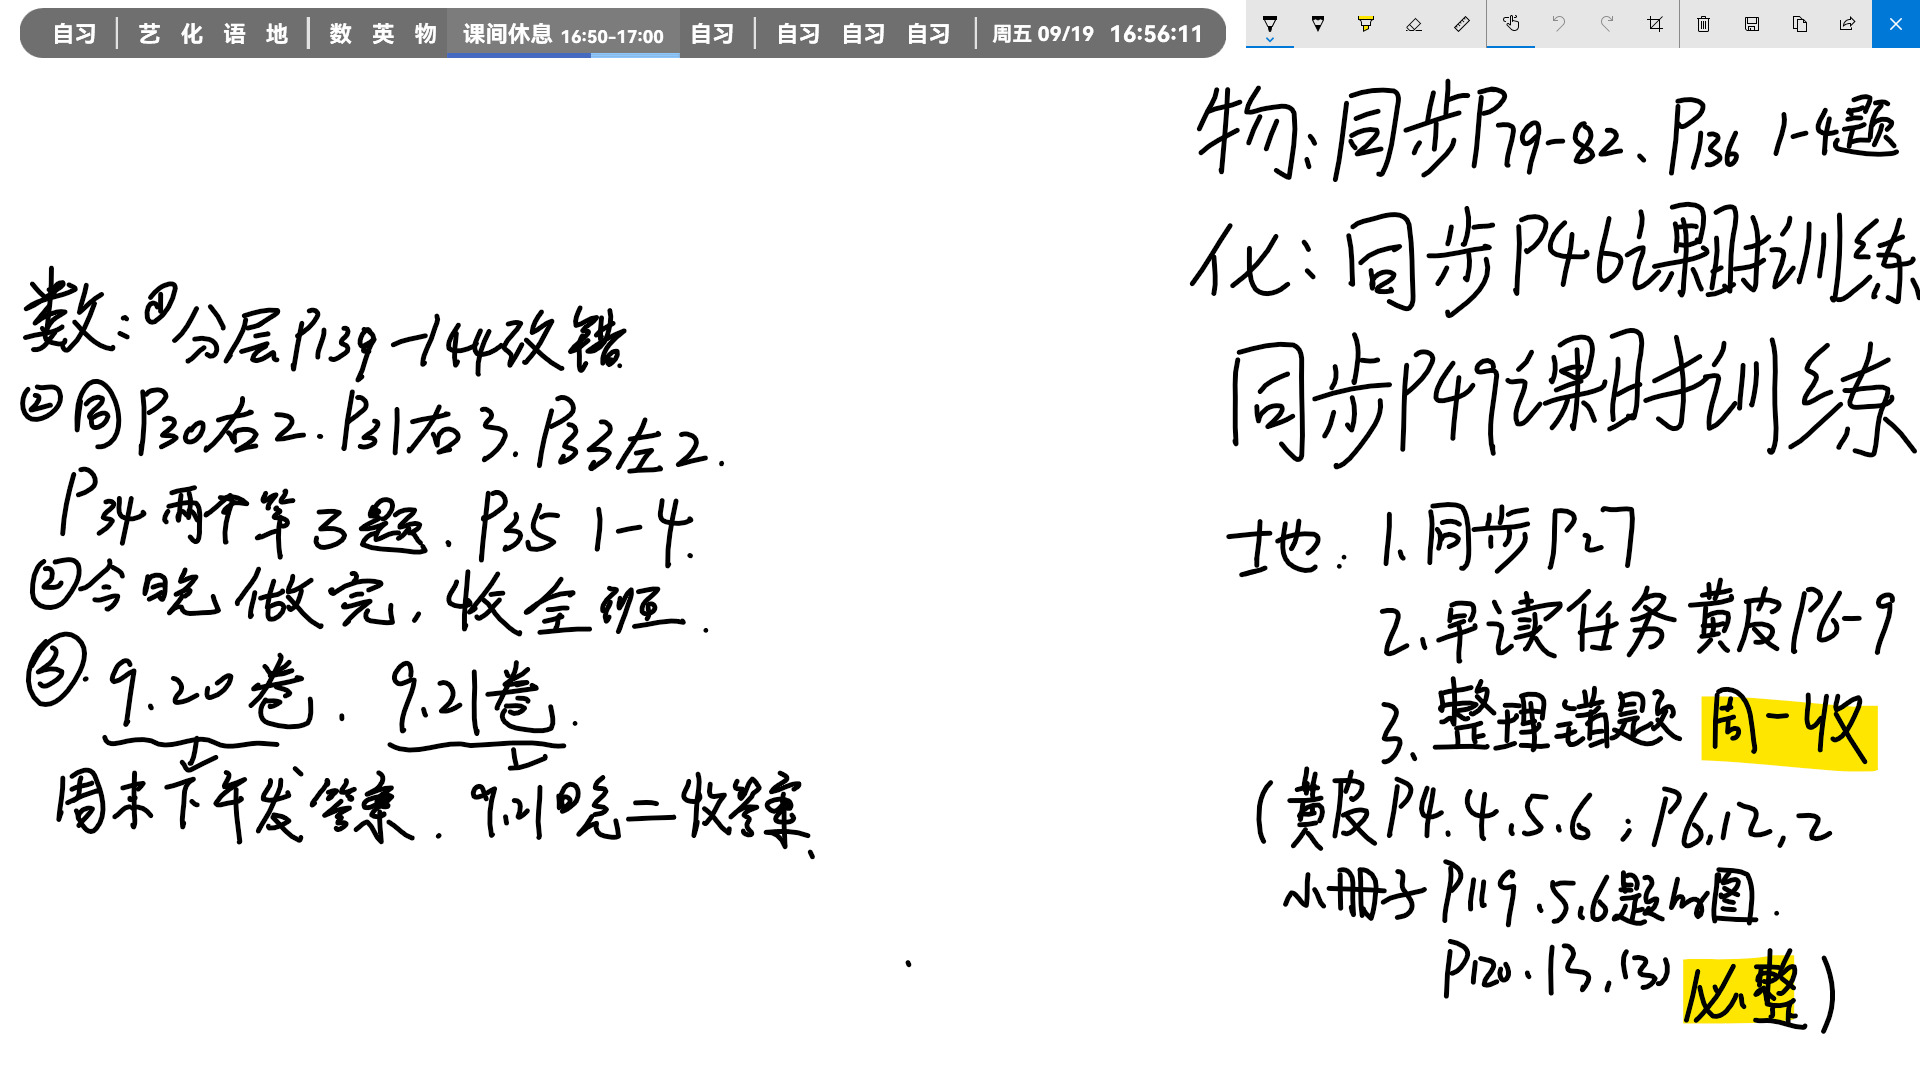 自习 | 艺 化 语 地 | 数 英 物 课间休息 16:50-17:00 自习 | 自习 自习 自习 | 周五 09/19 16:56:11
数:①分层P139-144改错.
②同P30右2.P31右3.P33左2.
P34两个第3题.P35 1-4.
②今日晚做完,收全班.
③.9.20卷.9.21卷.
周末下午发答案.9.21日晚二收答案.
物:同步P79-82、P136 1-4题
化:同步P46课时训练
同步P49课时训练
地:1、同步P27
2、早读任务黄皮P6-9
3、整理错题 周一收
(黄皮P4.4.5.6;P6.12,2
小册子P119.5.6题的图.
P120.13,(3) 必整)